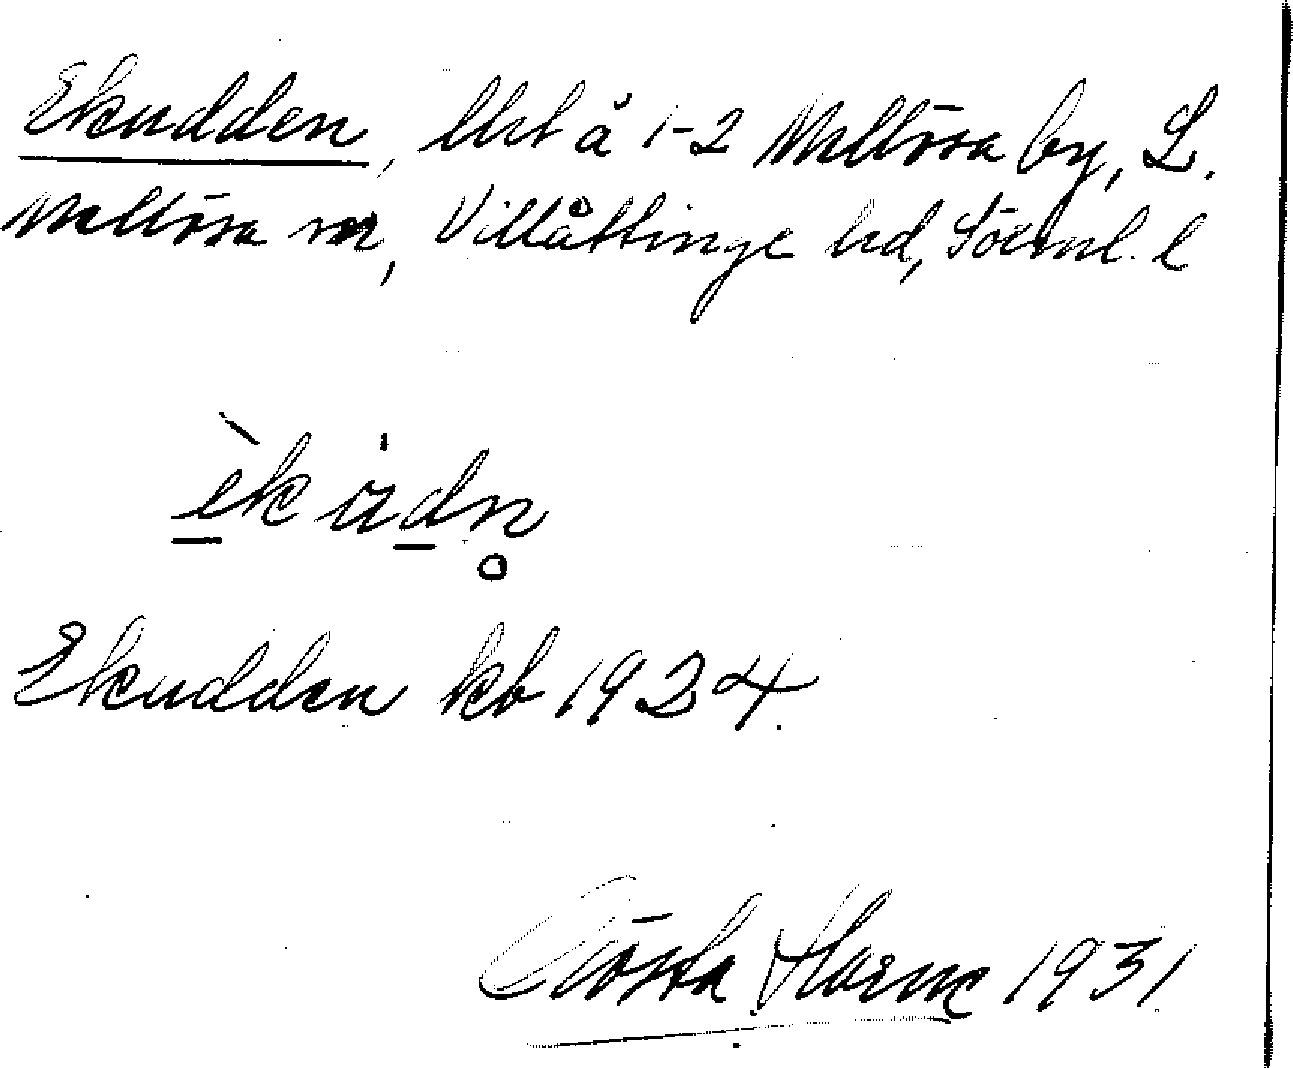 Ekudden, lht å 1-2 Mellösa by, L.
Mellösa sn, Villåttinge hd, Sörml. l
èk ùdn̥
Ekudden kb 1924.
Gösta 1931